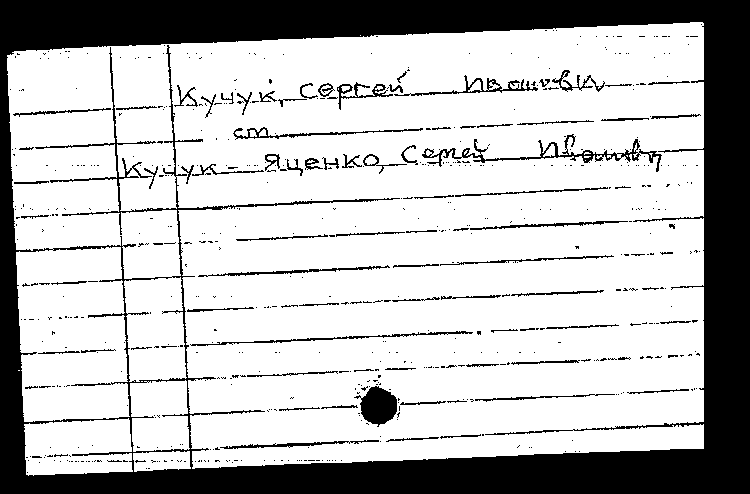 Кучук, Сергей Иванович
см.
Кучук - Яценко, Сергей Иванович